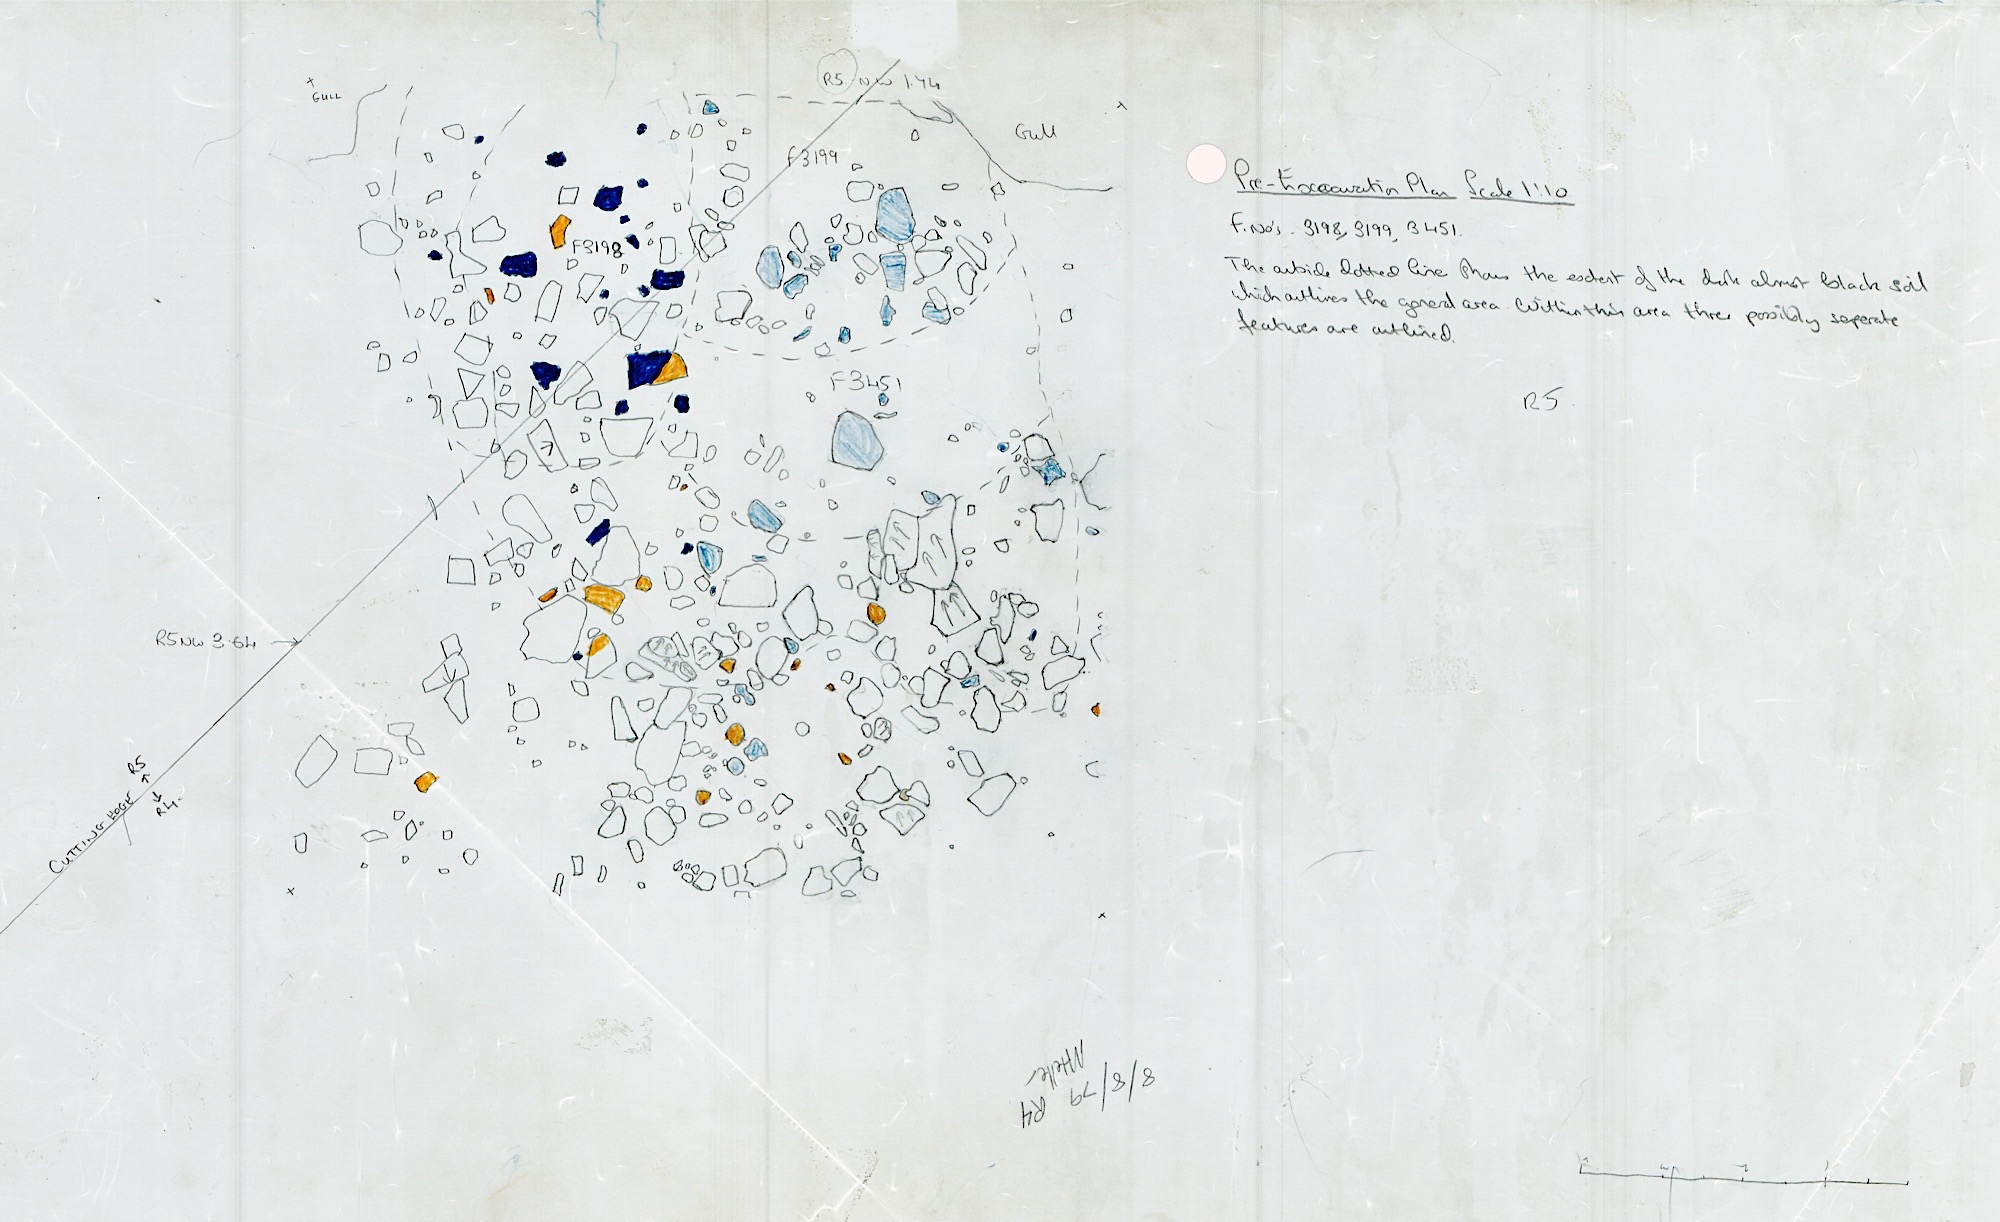 GULL
R5 NW 1.74
Gull
F3199
F3198
F3451
Pre-Excavation Plan Scale 1:10
F. No's. 3198, 3199, 3451.
The outside dotted line shows the extent of the dark almost black soil
which outlines the general area. Within this area three possibly seperate
features are outlined.
R5.
R5NW 3.64
R5
R4.
CUTTING EDGE
8/8/79
R4